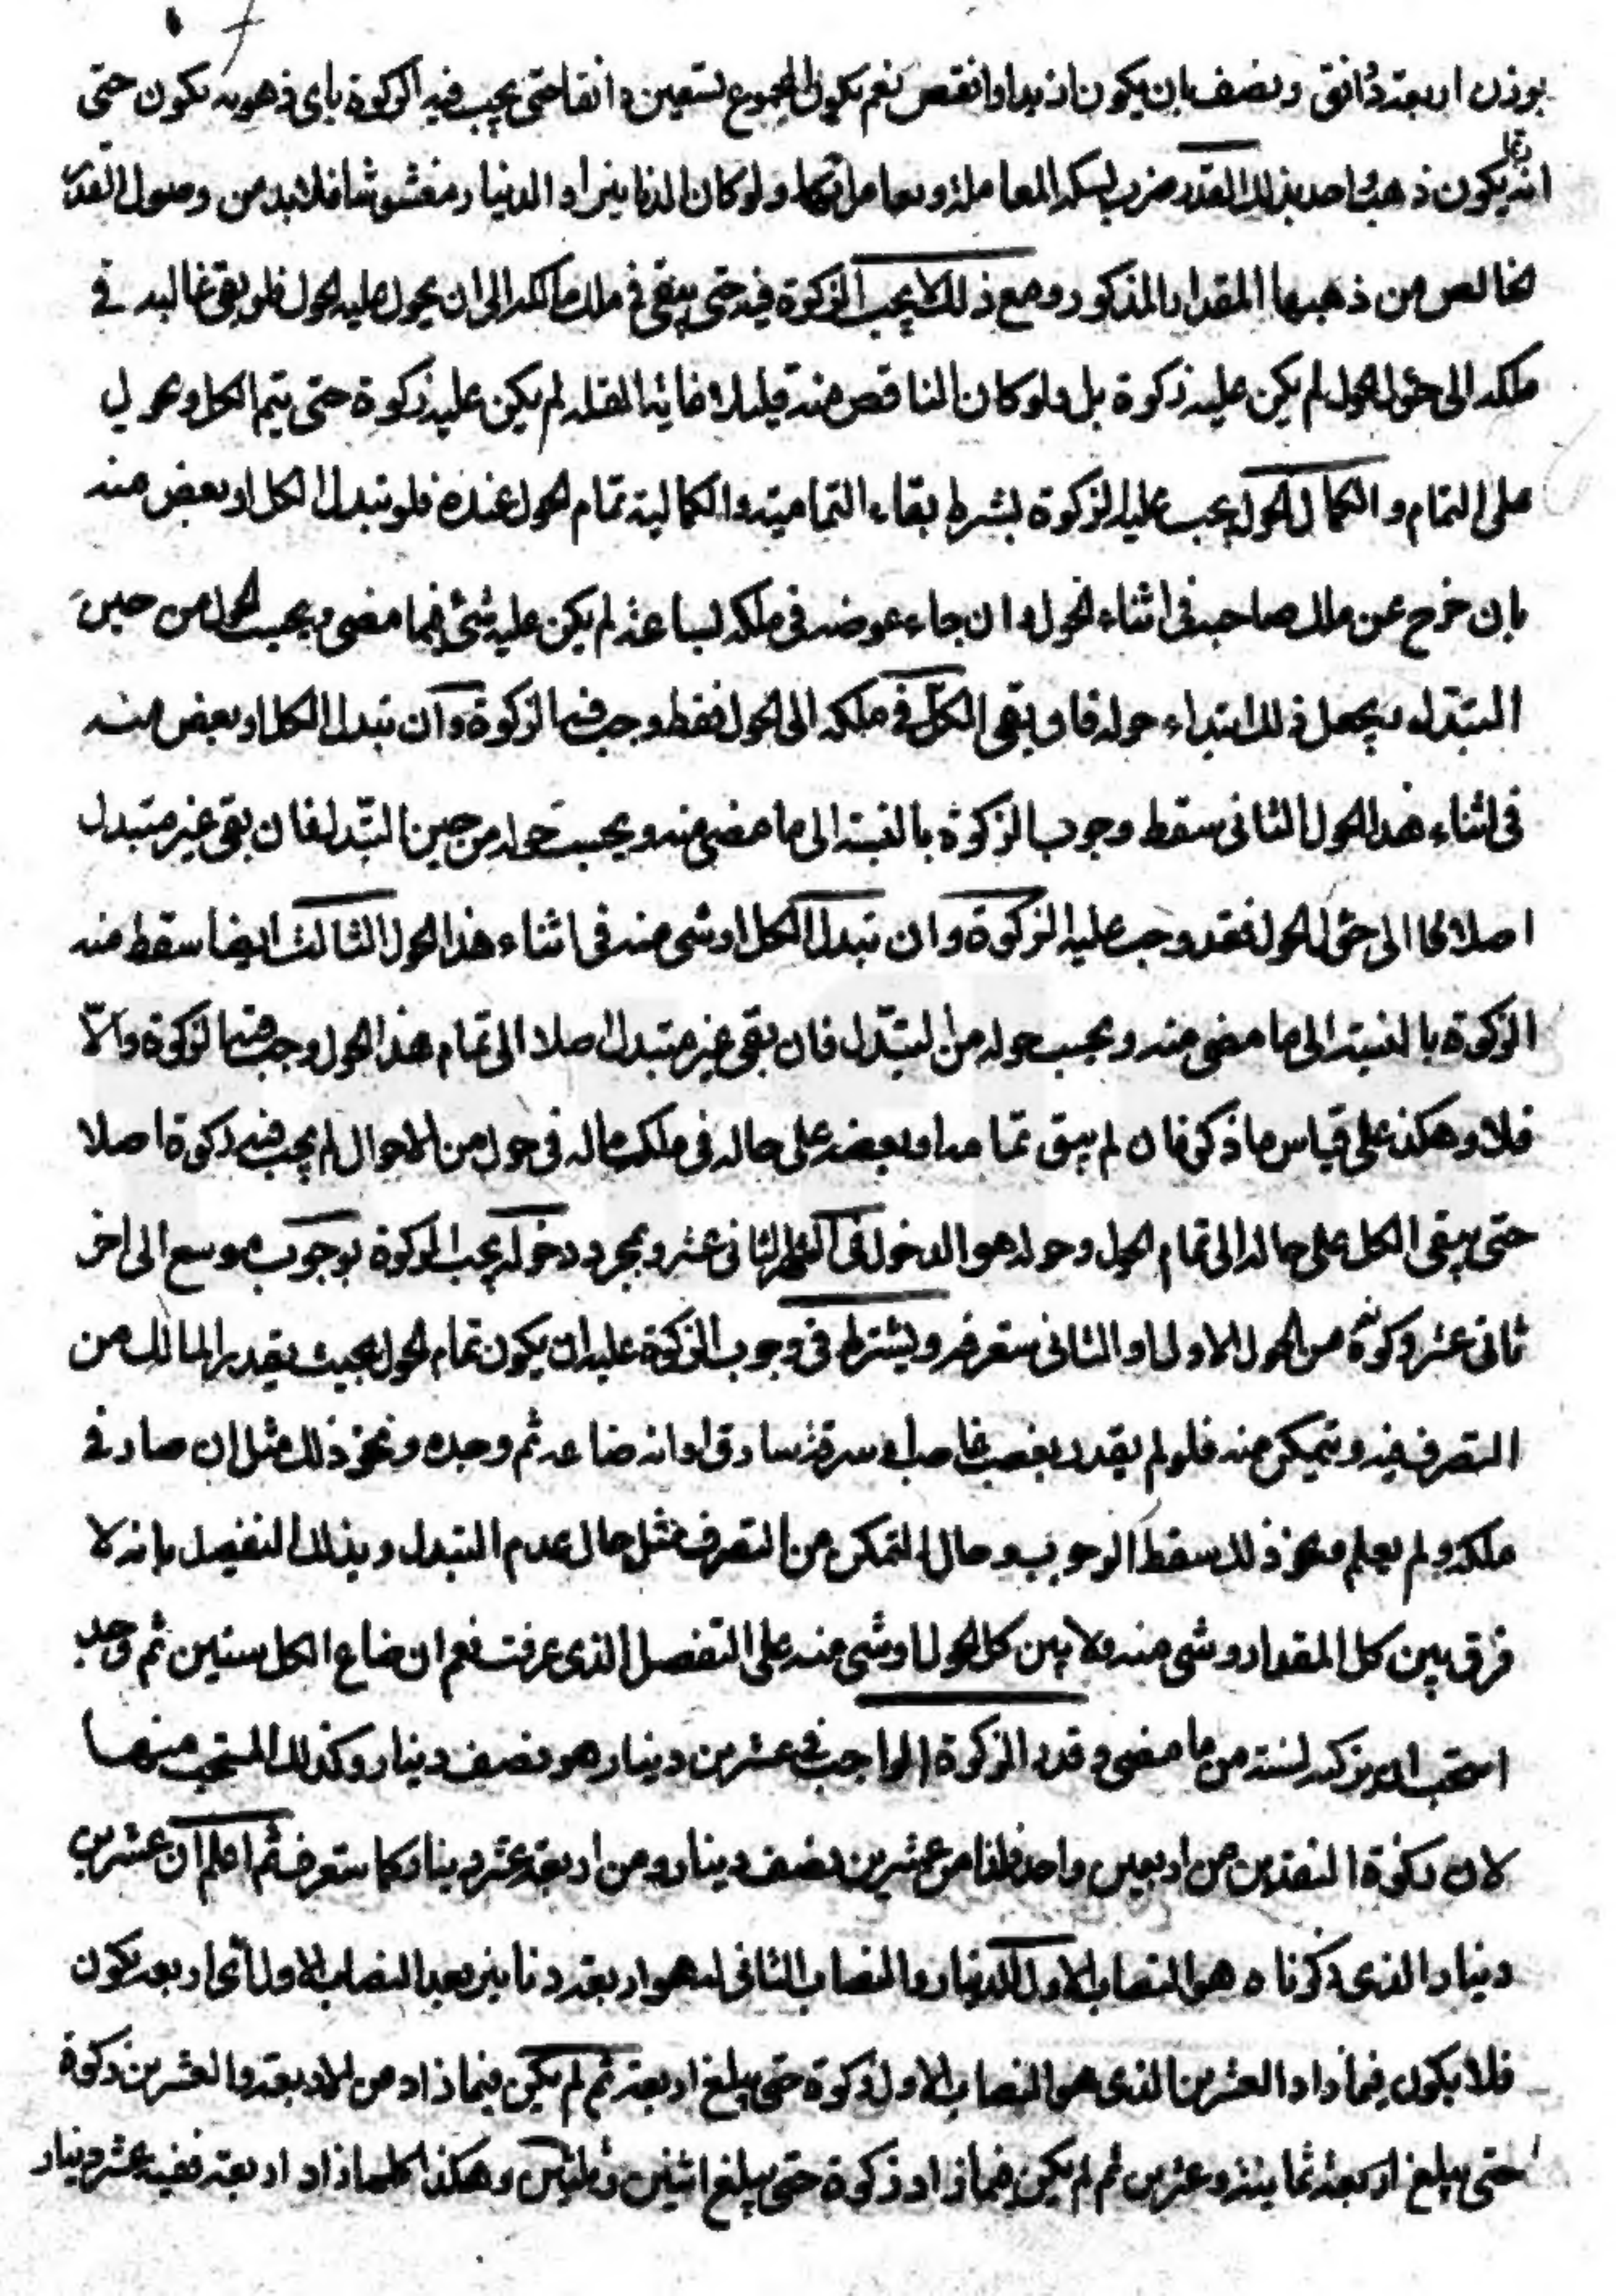 بوزن اربعة دانق ونصف بان يكون ازيد او انقص نعم يكون المجموع تسعين دانقا حتى يجب فيه الزكوة باى ذهوبه يكون حتى
انه يكون ذهبا واحد بذلك القدر ضرب لسكه المعاملة ويعامل بهما ولو كان الدنانير او الدنيار مغشوشا فلا بد من وصول القدر
الخالص من ذهبها المقدار المذكور ومع ذلك لا يجب الزكوة فيه حتى يبقى فى ملك مالكه الى ان يحول عليه الحول فلو بقى غالبه فى
ملكه الى حول الحول لم يكن عليه زكوة بل ولو كان الناقص منه قليلا فى غاية القله لم يكن عليه زكوة حتى يتم الكل ويحول
على التمام والكمال الحول يجب عليه الزكوة بشرط بقاء التمامية والكمالية تمام الحول عنده فلو تبدل الكل او بعض منه
بان خرج عن ملك صاحبه فى اثناء الحول وان جاء عوضه فى ملكه لساعة لم يكن عليه شئ فيما مضى ويحسب الحول من حين
التبدل ويجعل ذلك ابتداء حوله فاو بقى الكل فى ملكه الى الحول فقط وجب فيه الزكوة وان تبدل الكل او بعض منه
فى اثناء هذا الحول الثانى سقط وجوب الزكوة بالنسبة الى ما مضى منه ويحسب حوله من حين التبدل فان بقى غير متبدل
اصلا الى حول الحول فقد وجب عليه الزكوة وان تبدل الكل او شى منه فى اثناء هذا الحول الثالث ايضا سقط منه
الزكوة بالنسبة الى ما مضى منه ويحسب حوله من التبدل فان بقى غير متبدل اصلا الى تمام هذا الحول وجب فيه الزكوة والا
فلا وهكذا على قياس ما ذكر فان لم يبق تمامه او بعضه على حاله فى ملك ماله فى حول من الاحوال لم يجب فيه زكوة اصلا
حتى يبقى الكل على حاله الى تمام الحول وحوله هو الدخول فى الثانى عشر وبمجرد دخوله يجب الزكوة بوجوب موسع الى اخر
ثانى عشر وكونه من الحول الاول او الثانى ستعرفه ويشترط فى وجوب الزكوة عليه ان يكون تمام الحول بحيث يقدر المالك من
التصرف فيه ويتمكن منه فلو لم يقدر بغصب غاصب او سرقة سارق او انه ضاعه ثم وجده ونحو ذلك مثل ان صار فى
ملكه ولم يعلم ونحو ذلك سقط الوجوب وحال التمكن من التصرف مثل حال عدم التبدل وبذلك التفصيل بانه لا
فرق بين كل المقدار وشى منه ولا بين كل الحول او شى منه على التفصل الذى عرفت نعم ان ضاع الكل سنين ثم وجد
استحب ان يزكيه لسنة من ما مضى وقدر الزكوة الواجب فى عشرين دينار هو نصف دينار وكذلك المستحب منها
لان زكوة النقدين من اربعين واحد فلنا من عشرين نصف دينار ومن اربعة عشر دينار كما ستعرف ثم اعلم ان عشرين
دينار الذى ذكرناه هو النصاب الاول للدنيار والنصاب الثانى له هو اربعة دنانير بعد النصاب الاول اى اربعه يكون
فلا يكون فيما زاد العشرين الذى هو النصاب الاول زكوة حتى يبلغ اربعة ثم لم يكن فيما زاد من الاربعة والعشرين زكوة
حتى يبلغ اربعة ثمانية وعشرين ثم لم يكن فيما زاد زكوة حتى يبلغ اثنين وثلثين وهكذا كلما زاد اربعة ففيه عشر دينار